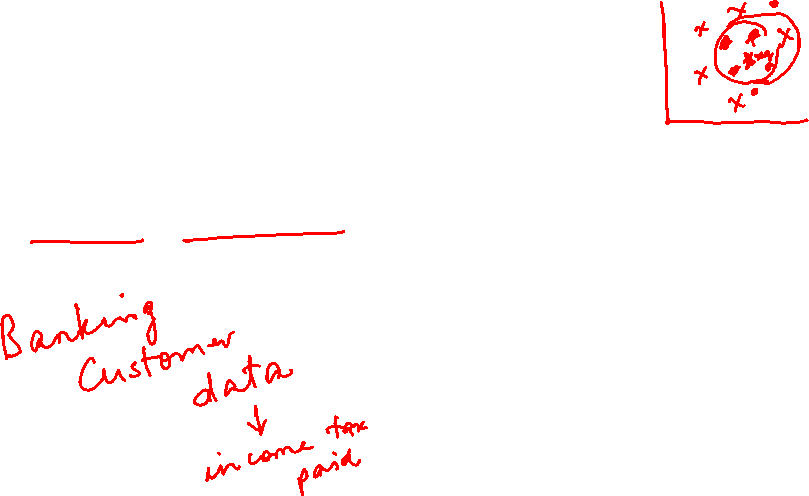 Banking
Customer
data
income tax
paid